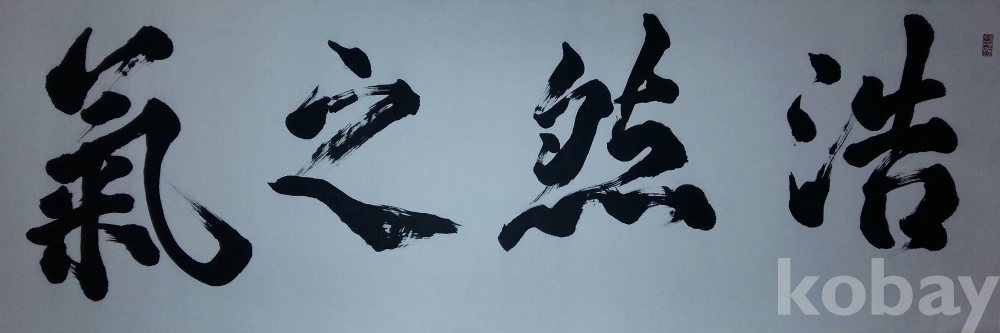 浩然之氣
kobay